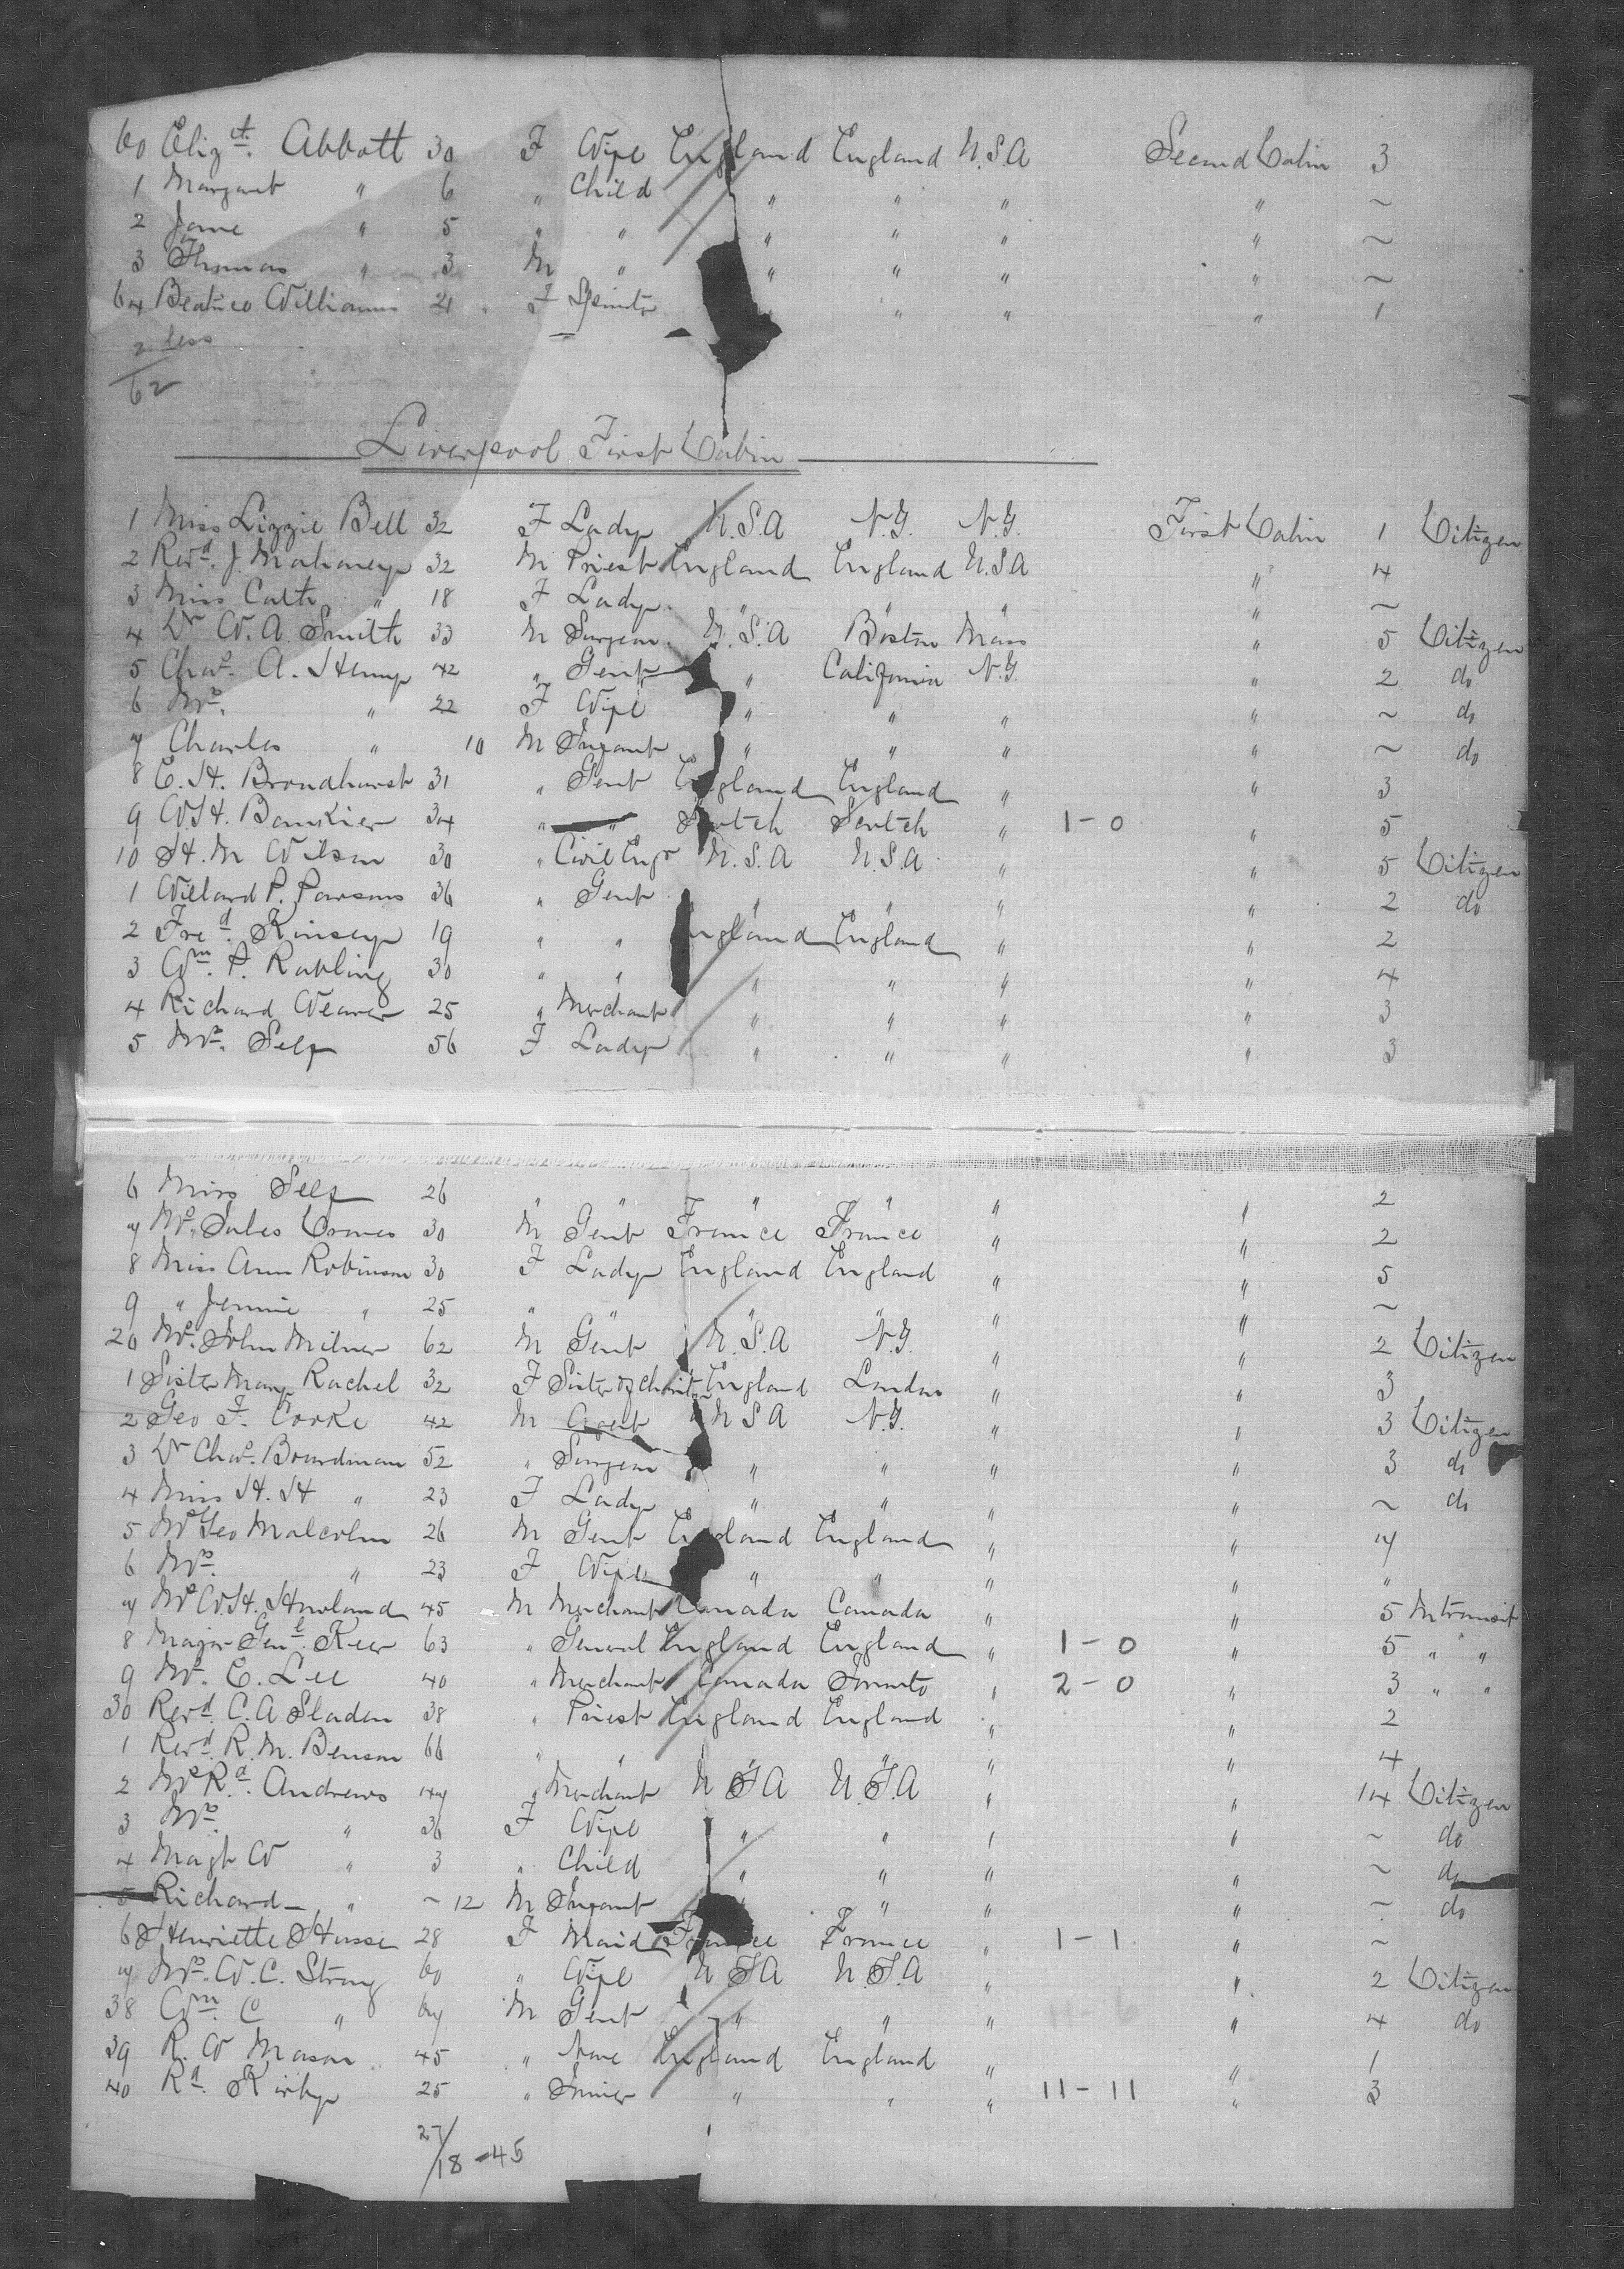 60 Elizth. Abbott 30 F Wife England England U.S.A Second Cabin 3
1 Margaret " 6 " Child " " " " ~
2 Jane " 5 " " " " " " ~
3 Thomas " 3 M " " " " " ~
64 Beatrice Williams 21 F Spinster " " " 1
2 less
62
Liverpool First Cabin
1 Miss Lizzie Bell 32 F Lady U.S.A N.Y. N.Y. First Cabin 1 Citizen
2 Revd. J. Mahoney 32 M Priest England England U.S.A " 4
3 Miss Cath " 18 F Lady " " " " ~
4 Dr W. A. Smith 33 M Surgeon U.S.A Boston Mass " 5 Citizen
5 Chas. A. Hemp 42 " Gent " California N.Y. " 2 do
6 Mrs. " 22 F Wife " " " " ~ do
7 Charles " 10 M Infant " " " " ~ do
8 E. H. Broadhurst 31 " Gent England England " " 3
9 W.H. Bankier 34 " " Scotch Scotch " 1-0 " 5
10 H. M Wilson 30 " Civil Engr U.S.A U.S.A " " 5 Citizen
1 Willard P. Parsons 36 " Gent " " " " 2 do
2 Fred. Kinsey 19 " " England England " " 2
3 Wm. P. Rabling 30 " " " " " " 4
4 Richard Weaver 25 " Merchant " " " " 3
5 Mrs. Self 56 F Lady " " " " 3
6 Miss Self 26 " " " " " " 2
7 Mr. Jules Cranes 30 M Gent France France " " 2
8 Miss Ann Robinson 30 F Lady England England " " 5
9 " Jennie " 25 " " " " " " ~
20 Mr. John Milner 62 M Gent U.S.A N.Y. " " 2 Citizen
1 Sister Mary Rachel 32 F Sister of Charity England London " " 3
2 Geo F. Cooke 42 M Agent U S A N.Y. " " 3 Citizen
3 Dr Chas. Boardman 52 " Surgeon " " " " 3 do
4 Miss H. H " 23 F Lady " " " " ~ do
5 Mr Geo Malcolm 26 M Gent England England " " 7
6 Mrs. " 23 F Wife " " " " "
7 Mr W.H. Howland 45 M Merchant Canada Canada " " 5 In transit
8 Major Genl. Keer 63 " General England England " 1-0 " 5 " "
9 Mr. E. Lee 40 " Merchant Canada Toronto " 2-0 " 3 " "
30 Revd. C. A Sladen 38 " Priest England England " " 2
1 Revd. R. M. Benson 66 " " " " " " 4
2 Mr Rd. Andrews 47 " Merchant U S A U.S.A " " 14 Citizen
3 Mrs. " 36 F Wife " " " " ~ do
4 Magt W " 3 " Child " " " " ~ do
5 Richard " ~ 12 M Infant " " " " ~ do
6 Henriette Husse 28 F Maid France France " 1-1 " ~
7 Mrs. W. C. Strong 60 " Wife U S A U.S.A " " 2 Citizen
38 Wm. C " 67 M Gent " " " 11-6 " 4 do
39 R. W Mason 45 " None England England " " 1
40 Rd. Kirby 25 " Joiner " " " 11-11 " 3
27/18-45